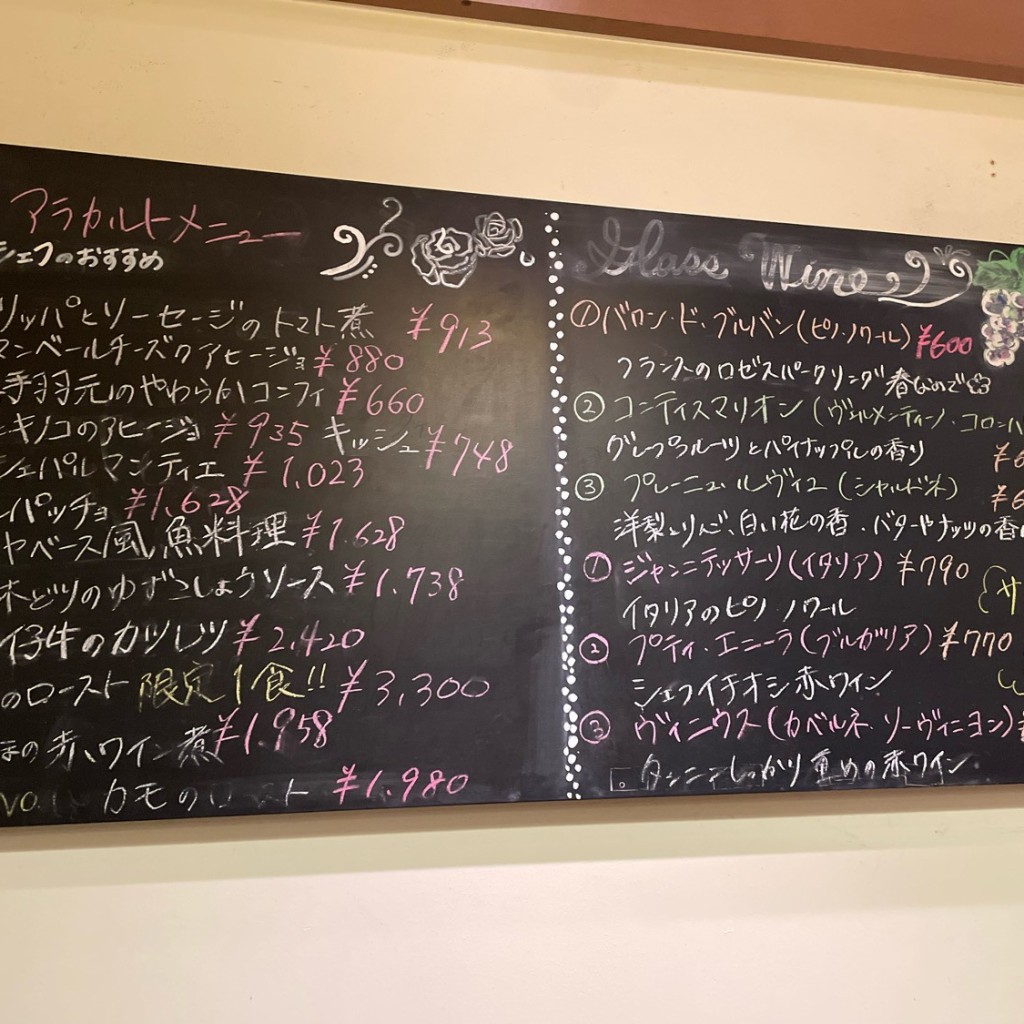 アラカルトメニュー
シェフのおすすめ
リッパとソーセージのトマト煮 ¥913
マンベールチーズのアヒージョ ¥880
手羽元のやわらかコンフィ ¥660
キノコのアヒージョ ¥935 キッシュ ¥748
シェパルマンティエ ¥1,023
パッチョ ¥1,628
ヤベース風魚料理 ¥1.628
ゆずこしょうソース ¥1,738
仔牛のカツレツ ¥2,420
のロースト 限定1食!! ¥3,300
の赤ワイン煮 ¥1,958
カモの ト ¥1,980
Glass Wine
①バロン・ド・ブルバン(ピノ・ノワール) ¥600
フランスのロゼスパークリング 春なので
②コンティスマリオン(ヴェルメンティーノ・コロンバ
グレープフルーツとパイナップルの香り
③プレーニュ・ルヴィエ(シャルドネ)
洋梨とりんご、白い花の香・バターやナッツの香
①ジャンニテッサーリ(イタリア) ¥790
イタリアのピノ ノワール
②プティ・エニーラ(ブルガリア) ¥770
シェフイチオシ赤ワイン
③ヴィニウス(カベルネ・ソーヴィニヨン)
タンニンしっかり重めの赤ワイン